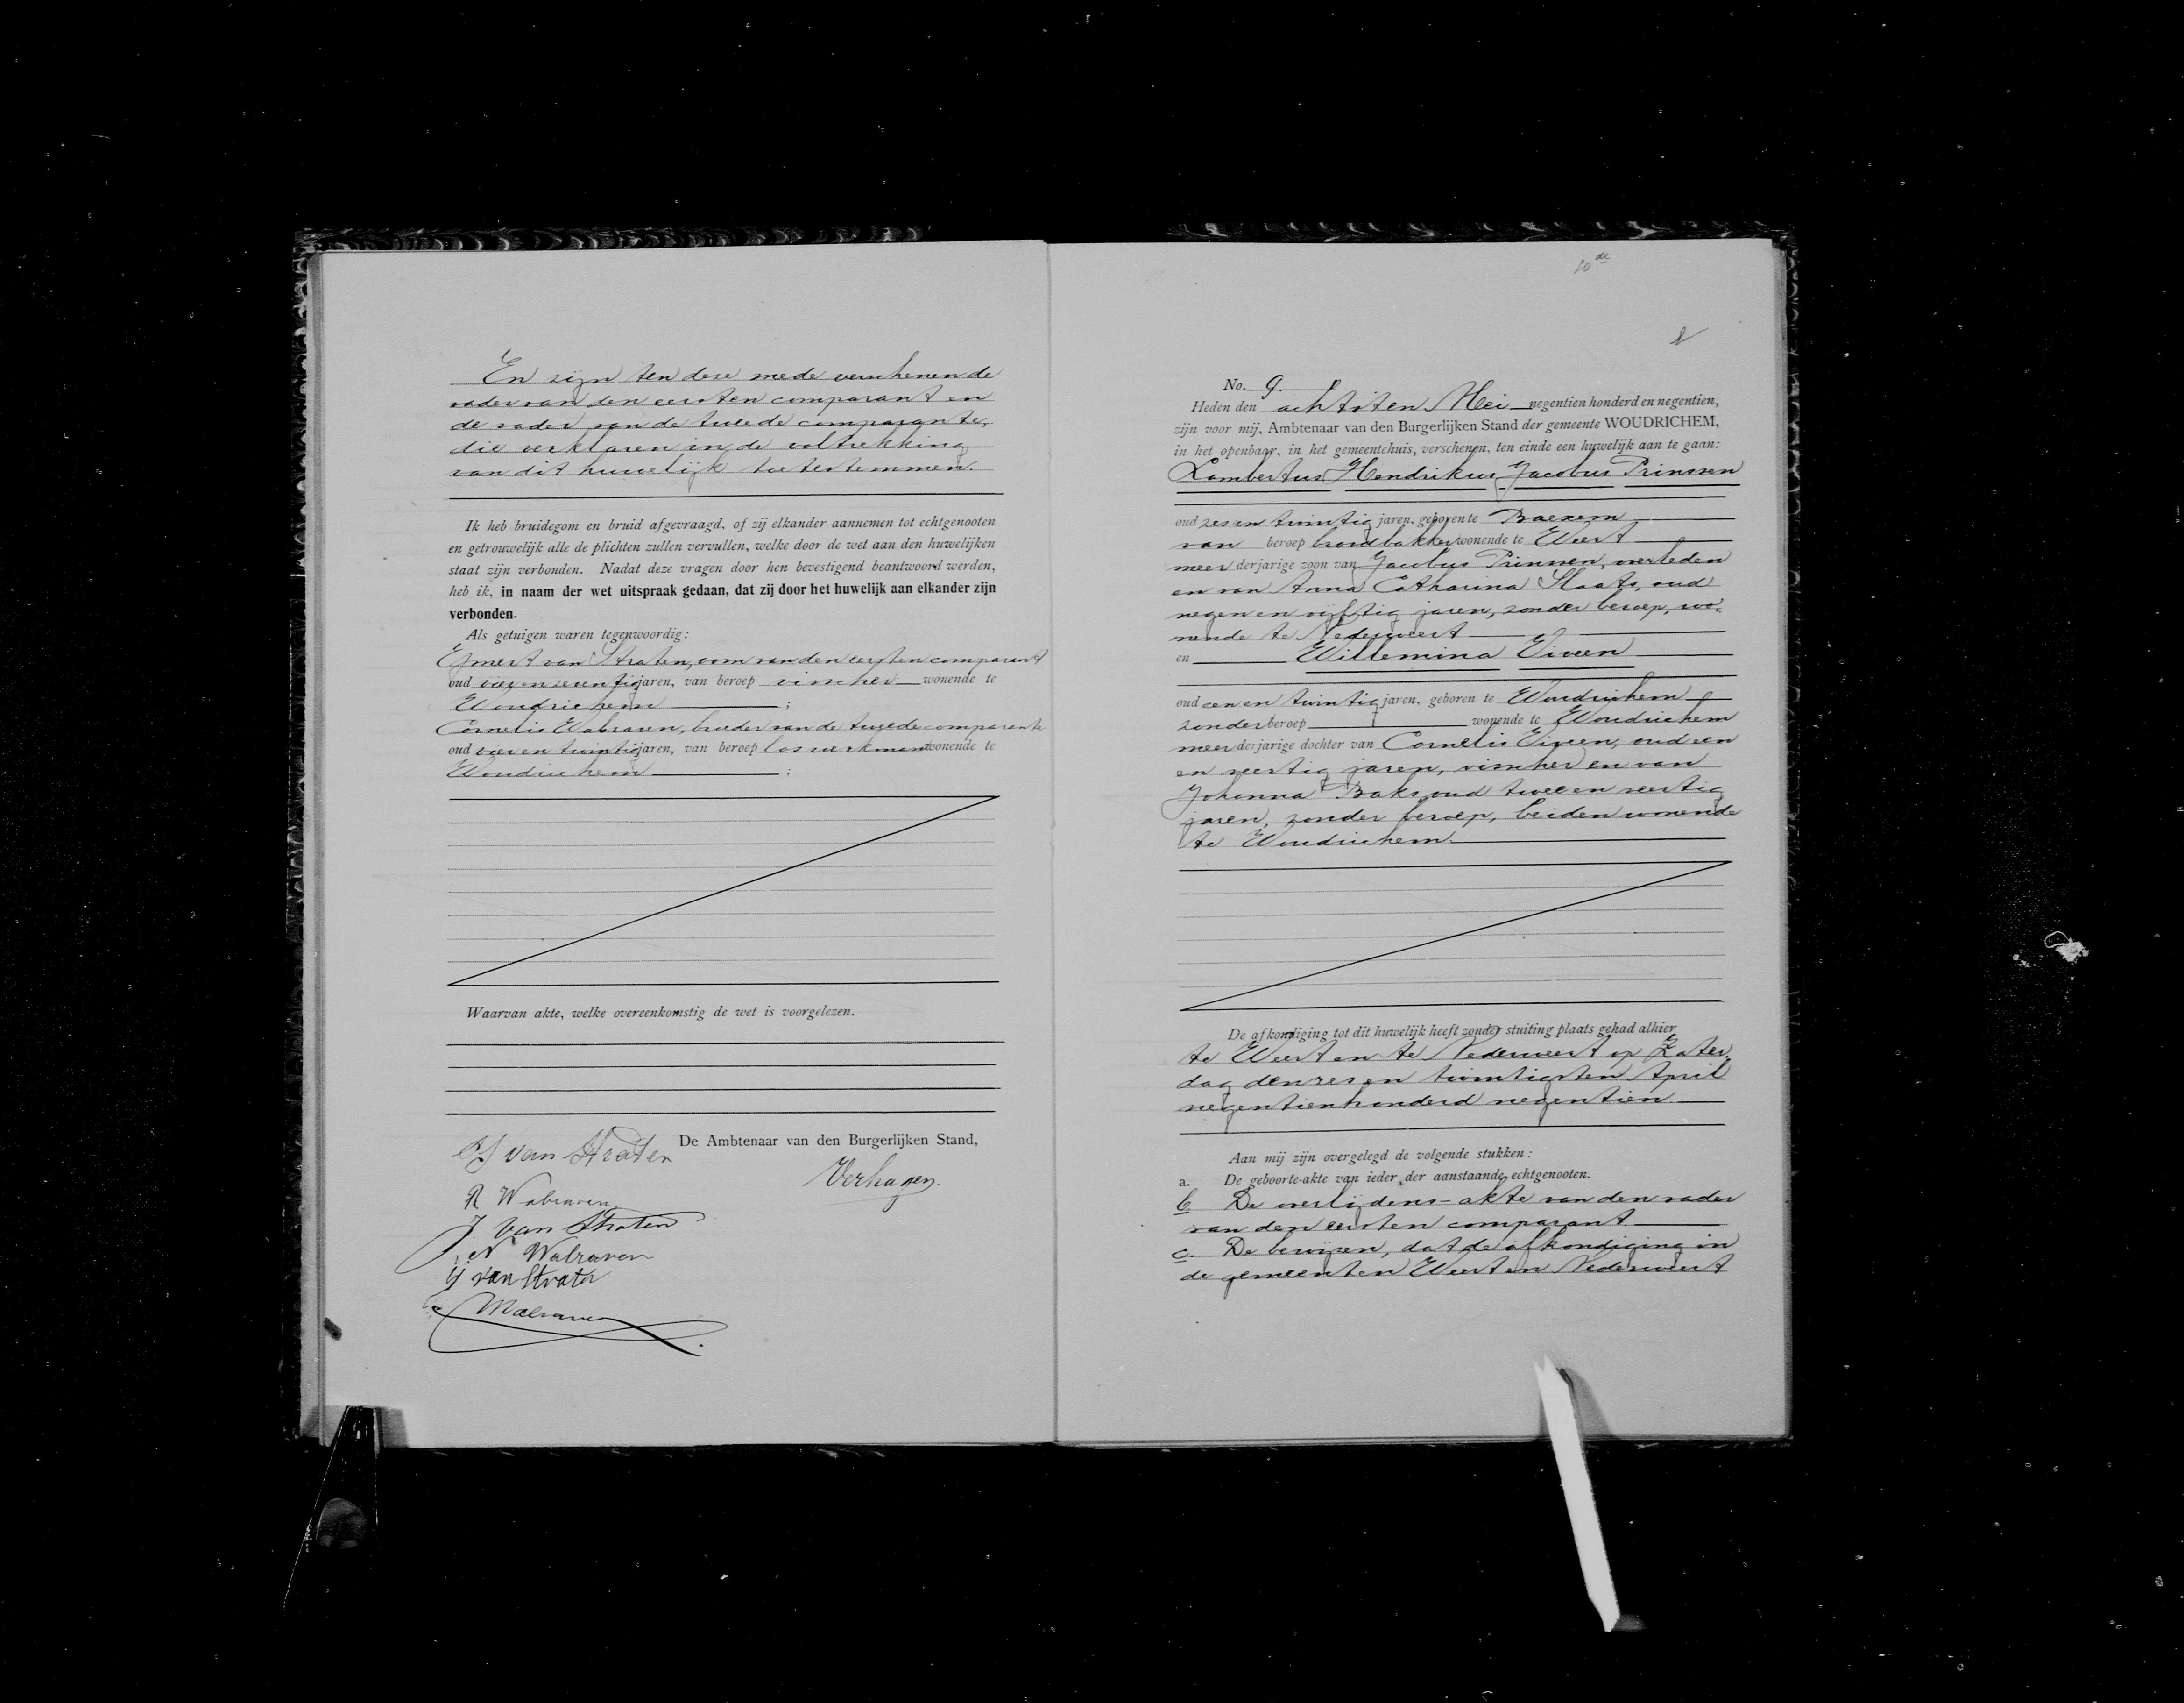 En zijn ten deze mede verschenen de
vader van den eersten comparant en
de vader van de tweede comparante,
die verklaren in de voltrekking
van dit huwelijk toe te stemmen.
Ik heb bruidegom en bruid afgevraagd, of zij elkander aannemen tot echtgenooten
en getrouwelijk alle de plichten zullen vervullen, welke door de wet aan den huwelijken
staat zijn verbonden. Nadat deze vragen door hen bevestigend beantwoord werden,
heb ik, in naam der wet uitspraak gedaan, dat zij door het huwelijk aan elkander zijn
verbonden.
Als getuigen waren tegenwoordig:
Ejmert van Straten, oom van den eersten comparant
oud vier en zeventig jaren, van beroep visscher wonende te
Woudrichem ;
Cornelis Walraven, broeder van de tweede comparante
oud vier en twintig jaren, van beroep los werkman wonende te
Woudrichem ;
Waarvan akte, welke overeenkomstig de wet is voorgelezen.
De Ambtenaar van den Burgerlijken Stand,
van Straten
Verhagen.
Walraven
J. van Straten
N Walraven
van Straten
Walraven
10de
No. 9.
Heden den achtsten Mei negentien honderd en negentien,
zijn voor mij, Ambtenaar van den Burgerlijken Stand der gemeente WOUDRICHEM,
in het openbaar, in het gemeentehuis, verschenen, ten einde een huwelijk aan te gaan:
Lambertus Hendrikus Jacobus Prinssen
oud zes en twintig jaren, geboren te Baexem
van beroep broodbakker wonende te Weert
meerderjarige zoon van Jacobus Prinssen, overleden
en van Anna Catharina Slaats, oud
negen en vijftig jaren, zonder beroep, wo-
nende te Nederweert
en Willemina Viveen
oud een en twintig jaren, geboren te Woudrichem
zonder beroep wonende te Woudrichem
meerderjarige dochter van Cornelis Viveen, oud een
en veertig jaren, visscher en van
Johanna Baks, oud twee en veertig
jaren, zonder beroep, beiden wonende
te Woudrichem.
De afkondiging tot dit huwelijk heeft zonder stuiting plaats gehad alhier
te Weert en te Nederweert op Zater-
dag den zes en twintigsten April
negentienhonderd negentien.
Aan mij zijn overgelegd de volgende stukken:
a. De geboorte-akte van ieder der aanstaande echtgenooten.
b. De overlijdens-akte van den vader
van den eersten comparant
c. De bewijzen, dat de afkondiging in
de gemeenten Weert en Nederweert